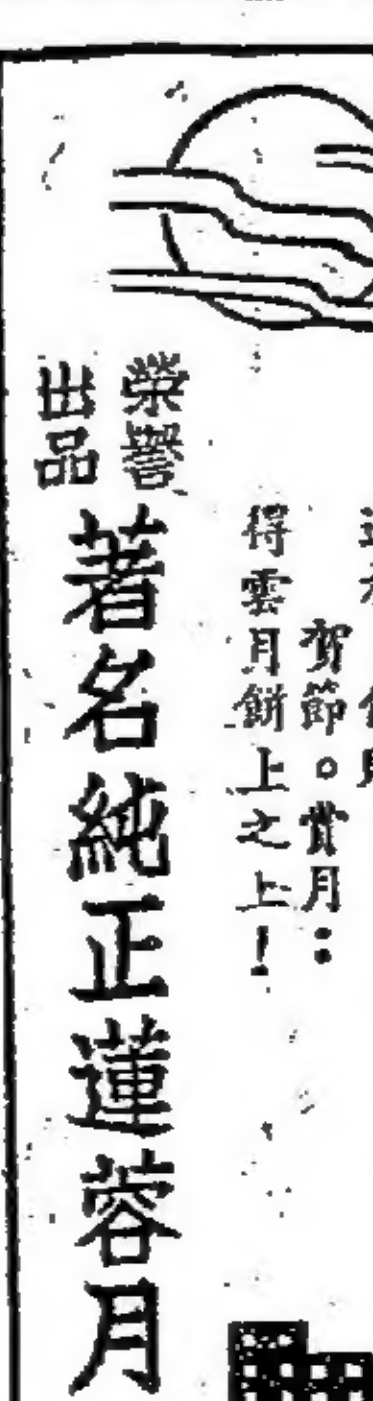 賀節。賞月：
得雲月餅上之上！
榮譽
出品
著名純正蓮蓉月